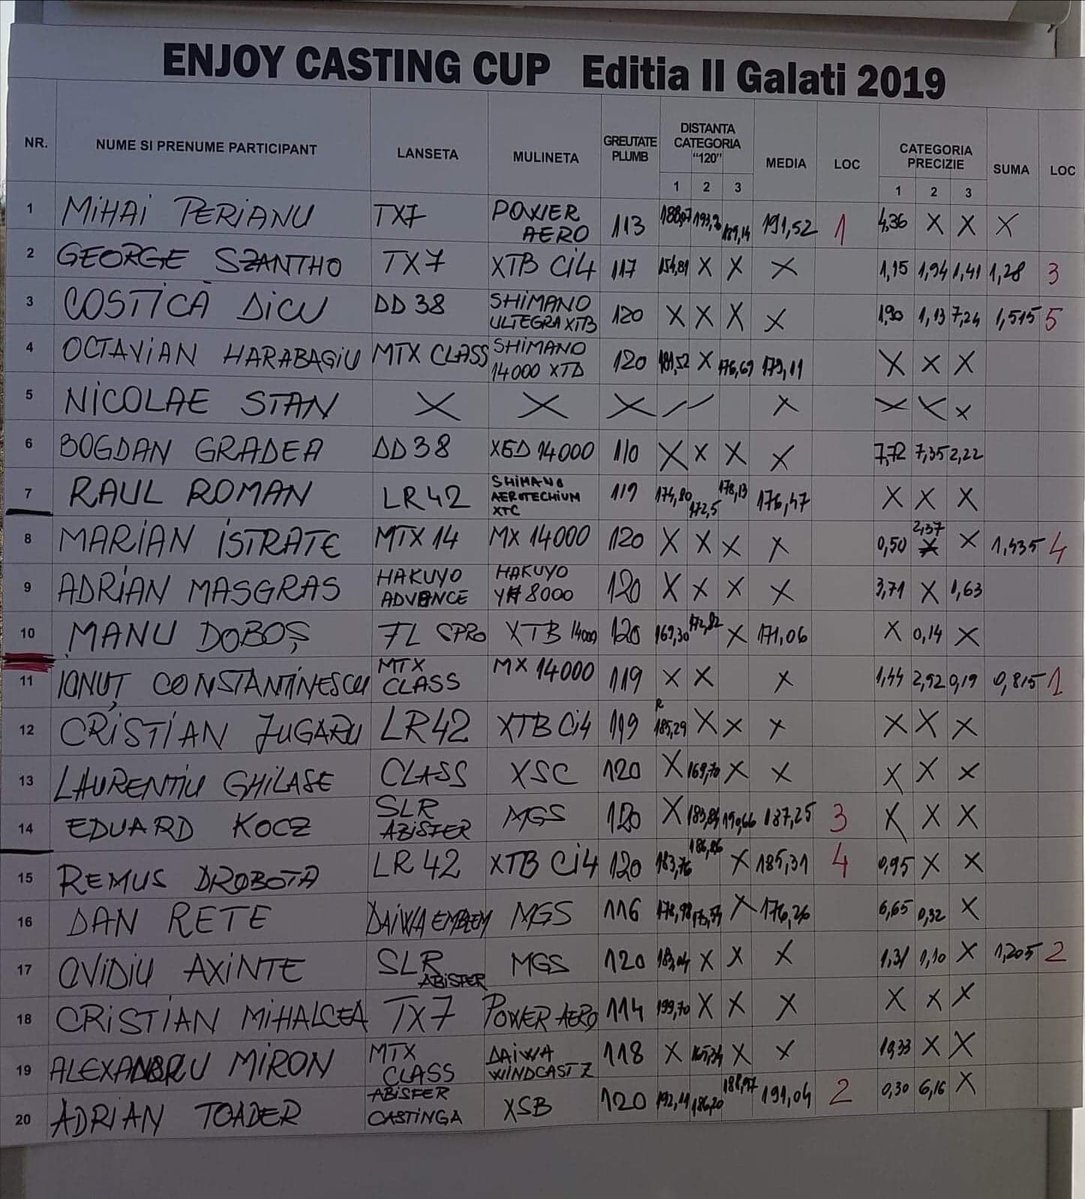 ENJOY CASTING CUP Editia II Galati 2019
NR. NUME SI PRENUME PARTICIPANT LANSETA MULINETA GREUTATE PLUMB DISTANTA CATEGORIA "120" 1 2 3 MEDIA LOC CATEGORIA PRECIZIE 1 2 3 SUMA LOC
1 MIHAI PERIANU TX7 POWER AERO 113 191,52 1 4,36 X X X
2 GEORGE SZANTHO TX7 XTB Ci4 117 154,81 X X X 1,15 1,94 1,41 1,28 3
3 COSTICĂ DICU DD 38 SHIMANO ULTEGRA XTB 120 X X X X 1,90 1,13 7,24 1,515 5
4 OCTAVIAN HARABAGIU MTX CLASS SHIMANO 14000 XTD 120 181,52 X 176,69 179,11 X X X
5 NICOLAE STAN X X X X X X X
6 BOGDAN GRADEA DD 38 14000 110 X X X X 7,72 7,35 2,22
7 RAUL ROMAN LR 42 SHIMANO AEROTECHIUM XTC 119 174,80 172,5 178,13 176,47 X X X
8 MARIAN ISTRATE MTX 14 MX 14000 120 X X X X 0,50 2,37 X 1,435 4
9 ADRIAN MASGRAS HAKUYO ADVENCE HAKUYO 8000 120 X X X X 3,71 X 1,63
10 MANU DOBOȘ 7L SPRO XTB 14000 120 169,30 172,82 X 171,06 X 0,14 X
11 IONUȚ CONSTANTINESCU MTX CLASS MX 14000 119 X X X 1,44 2,92 0,19 0,815 1
12 CRISTIAN JUGARU LR42 XTB Ci4 119 R 185,29 X X X X X X
13 LAURENTIU GHILASE CLASS XSC 120 X 169,70 X X X X X
14 EDUARD KOCZ SLR ABISFER MGS 120 X 183,84 190,66 187,25 3 X X X
15 REMUS DROBOTA LR 42 XTB Ci4 120 183,76 186,86 X 185,31 4 0,95 X X
16 DAN RETE DAIWA EMBLEM MGS 116 X 176,26 6,65 0,32 X
17 OVIDIU AXINTE SLR ABISFER MGS 120 X X X 1,31 1,10 X 1,205 2
18 CRISTIAN MIHALCEA TX7 POWER AERO 114 199,70 X X X X X X
19 ALEXANDRU MIRON MTX CLASS DAIWA WINDCAST Z 118 X X X X X
20 ADRIAN TOADER ABISFER CASTINGA XSB 120 192,11 186,20 188,97 191,04 2 0,30 6,16 X